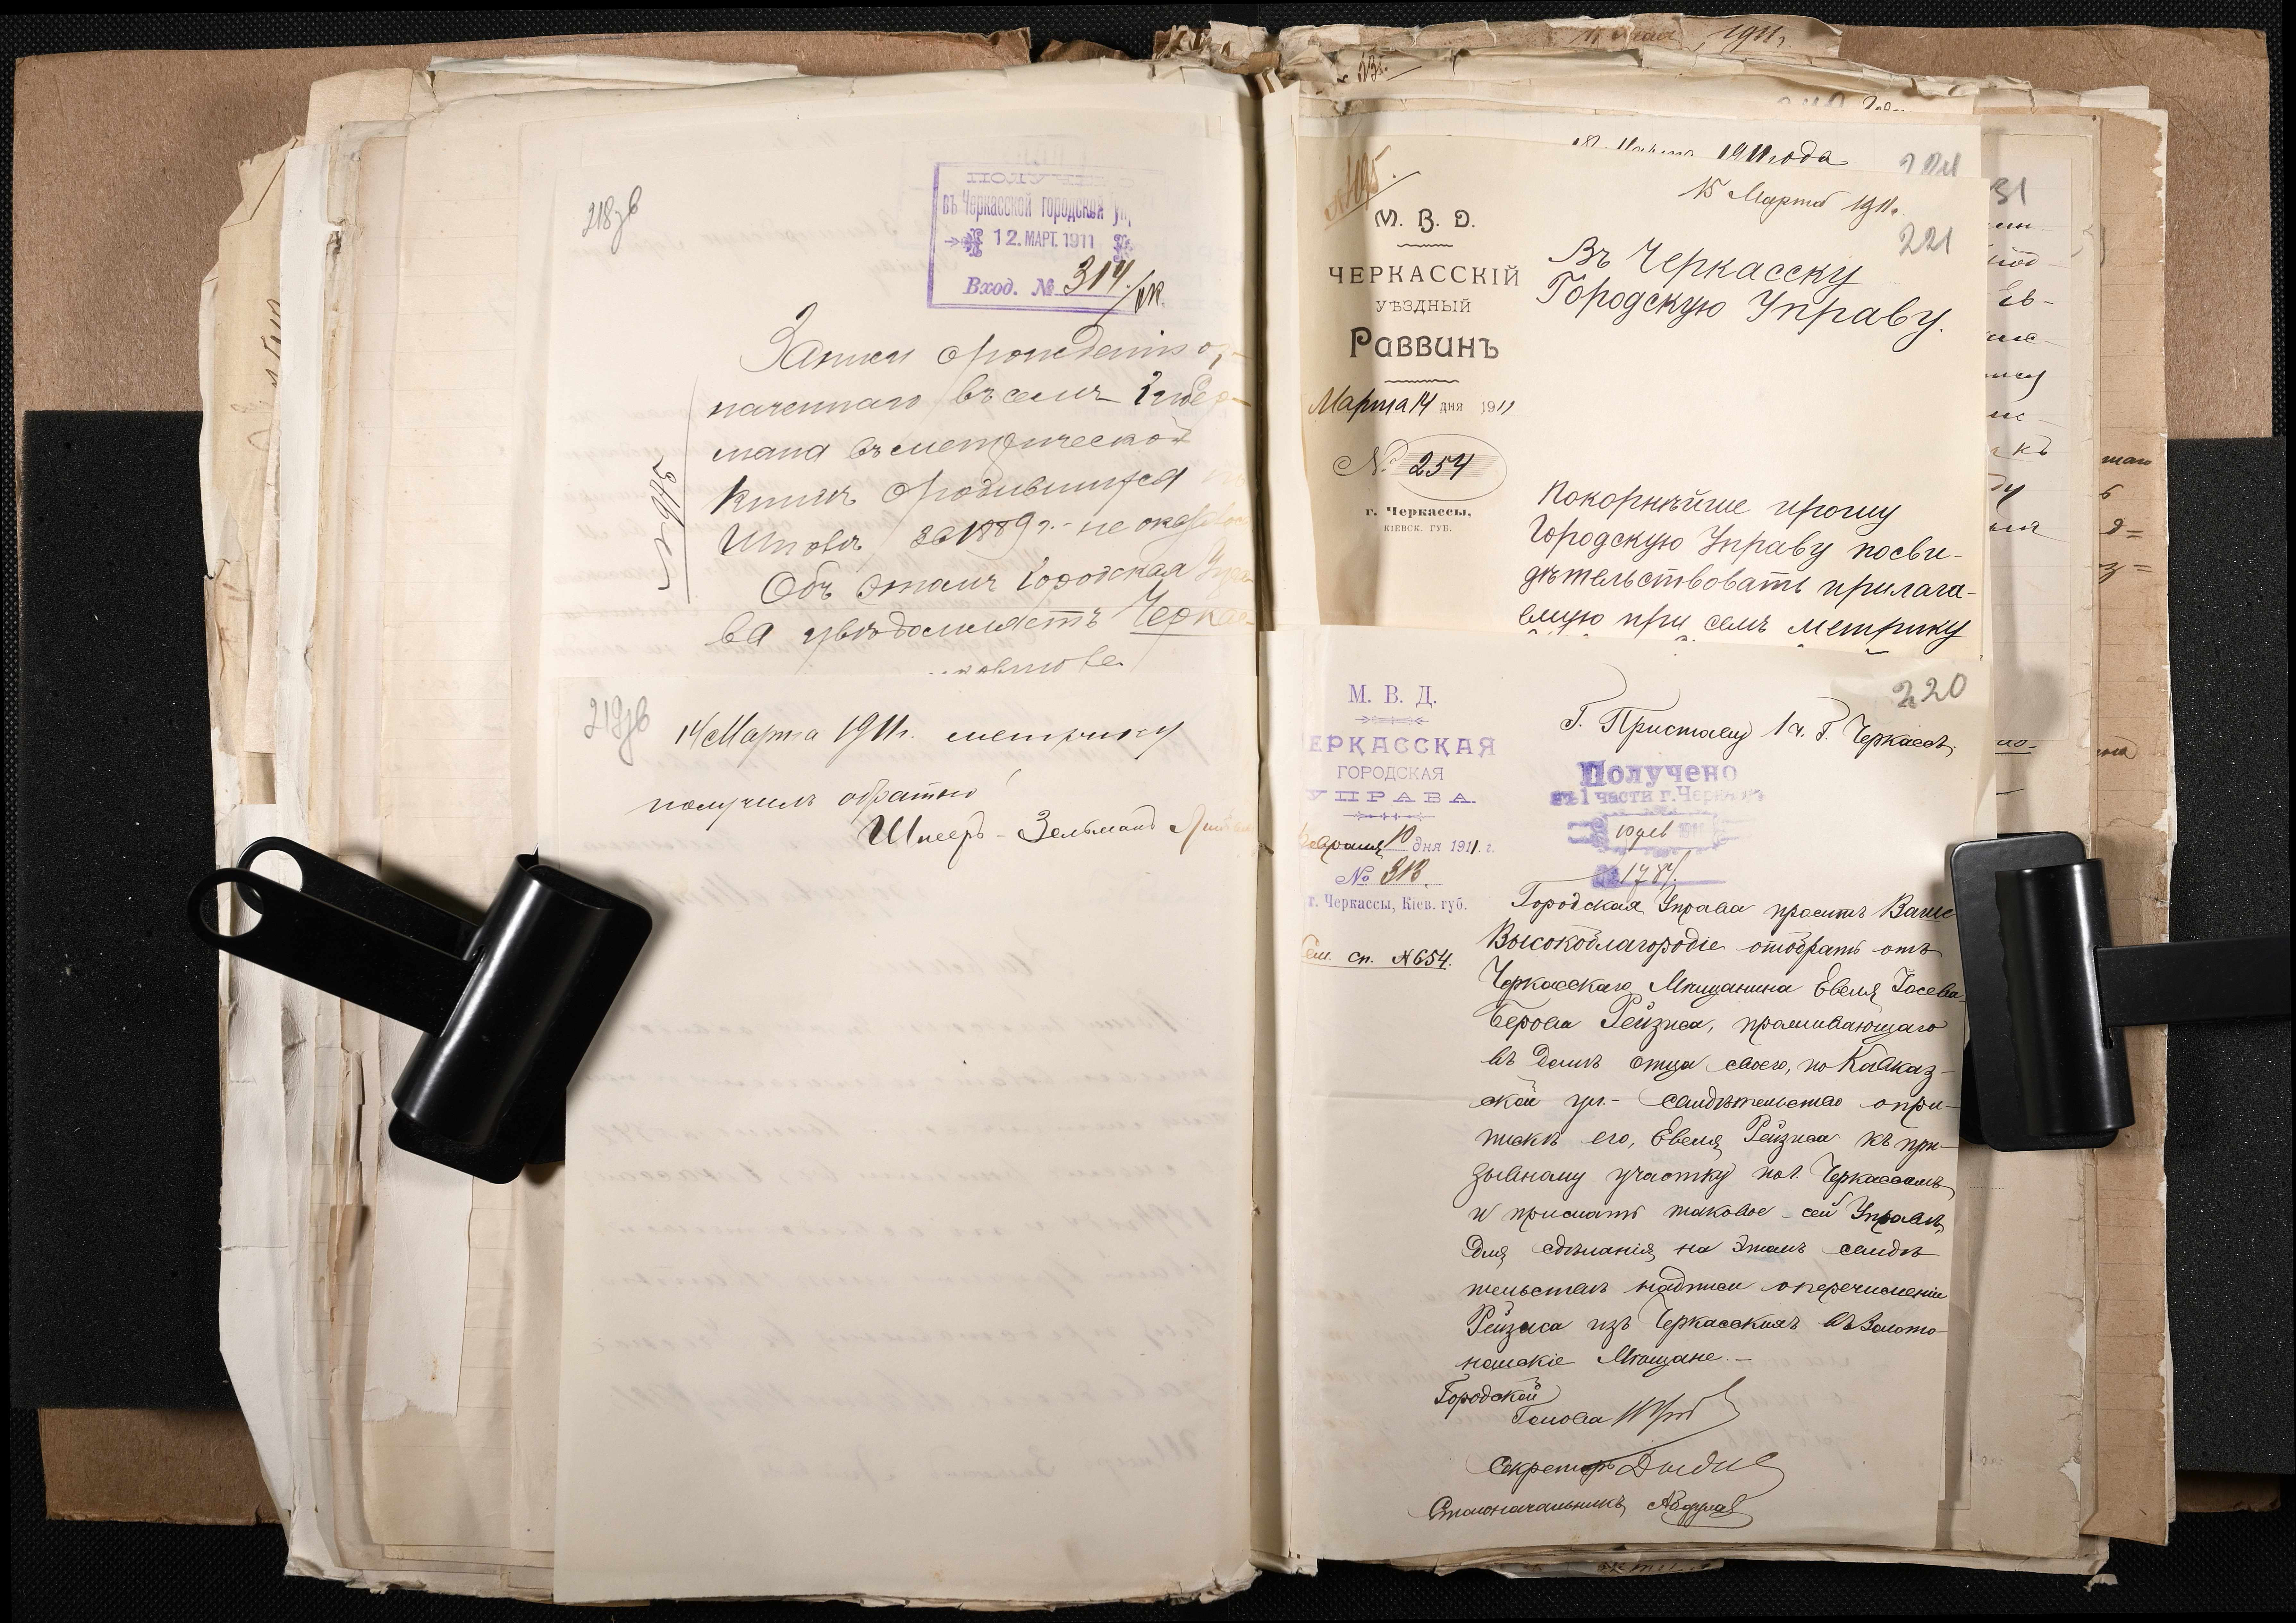 218 зв
въ Черкасской городской уп
12. МАРТ. 1911
Вход. № 314/
Записи о рожденіи о,
наченнаго въ семъ Губер-
мана въ метрической
книгѣ о родившихся
Шполѣ за 1889 г. не оказ
Объ этомъ Городская Упра
ва увѣдомляетъ Черкас-
219 зв
14 Марта 1911 г. метрику
получилъ обратно
Шмеръ-Зельманъ
1911,
Марта 1911 года
221
15 Марта 1911 г.
31
М. В. Д.
ЧЕРКАССКІЙ
УѢЗДНЫЙ
Раввинъ
Марта 14 дня 1911
№ 254
г. Черкассы,
КІЕВСК. ГУБ.
Въ Черкасску
Городскую Управу.
Покорнѣйше прошу
Городскую Управу посви-
дѣтельствовать прилага-
емую при семъ метрику
220
М. В. Д.
ЕРКАССКАЯ
ГОРОДСКАЯ
УПРАВА.
евраля 10 дня 1911 г.
№ 313
г. Черкассы, Кіев. губ.
Сем. сп. № 654.
Г. Приставу 1 ч. г. Черкассъ,
Получено
въ 1 части г. Черкассъ
10 фев
1787
Городская Управа проситъ Ваше
Высокоблагородіе отобрать отъ
Черкасскаго Мѣщанина Евеля Іосева-
Берова Рейзиса, проживающаго
въ домѣ отца своего, по Кавказ-
ской ул.- свидѣтельство о при-
пискѣ его, Евеля Рейзиса къ при-
зывному участку по г. Черкассамъ
и прислать таковое сей Управѣ,
для сдѣланія на этомъ свидѣ
тельствѣ надписи о перечисленіи
Рейзиса изъ Черкасскихъ въ Золото-
ношскіе Мѣщане.-
Городской
Голова
Секретарь
Столоначальникъ